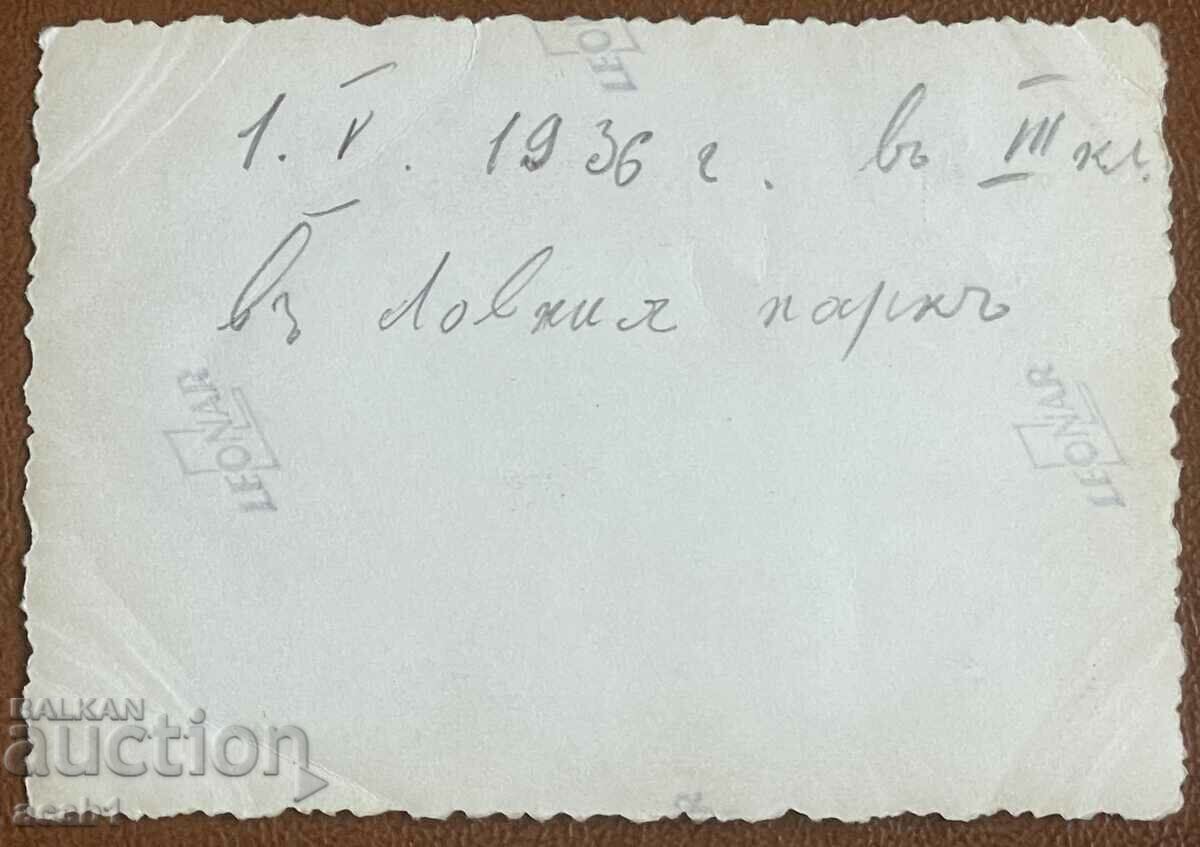 LEO
1. V. 1936 г. въ III кл.
въ Ловния паркъ
LEONAR
LEONAR
BALKAN
auction
acab1